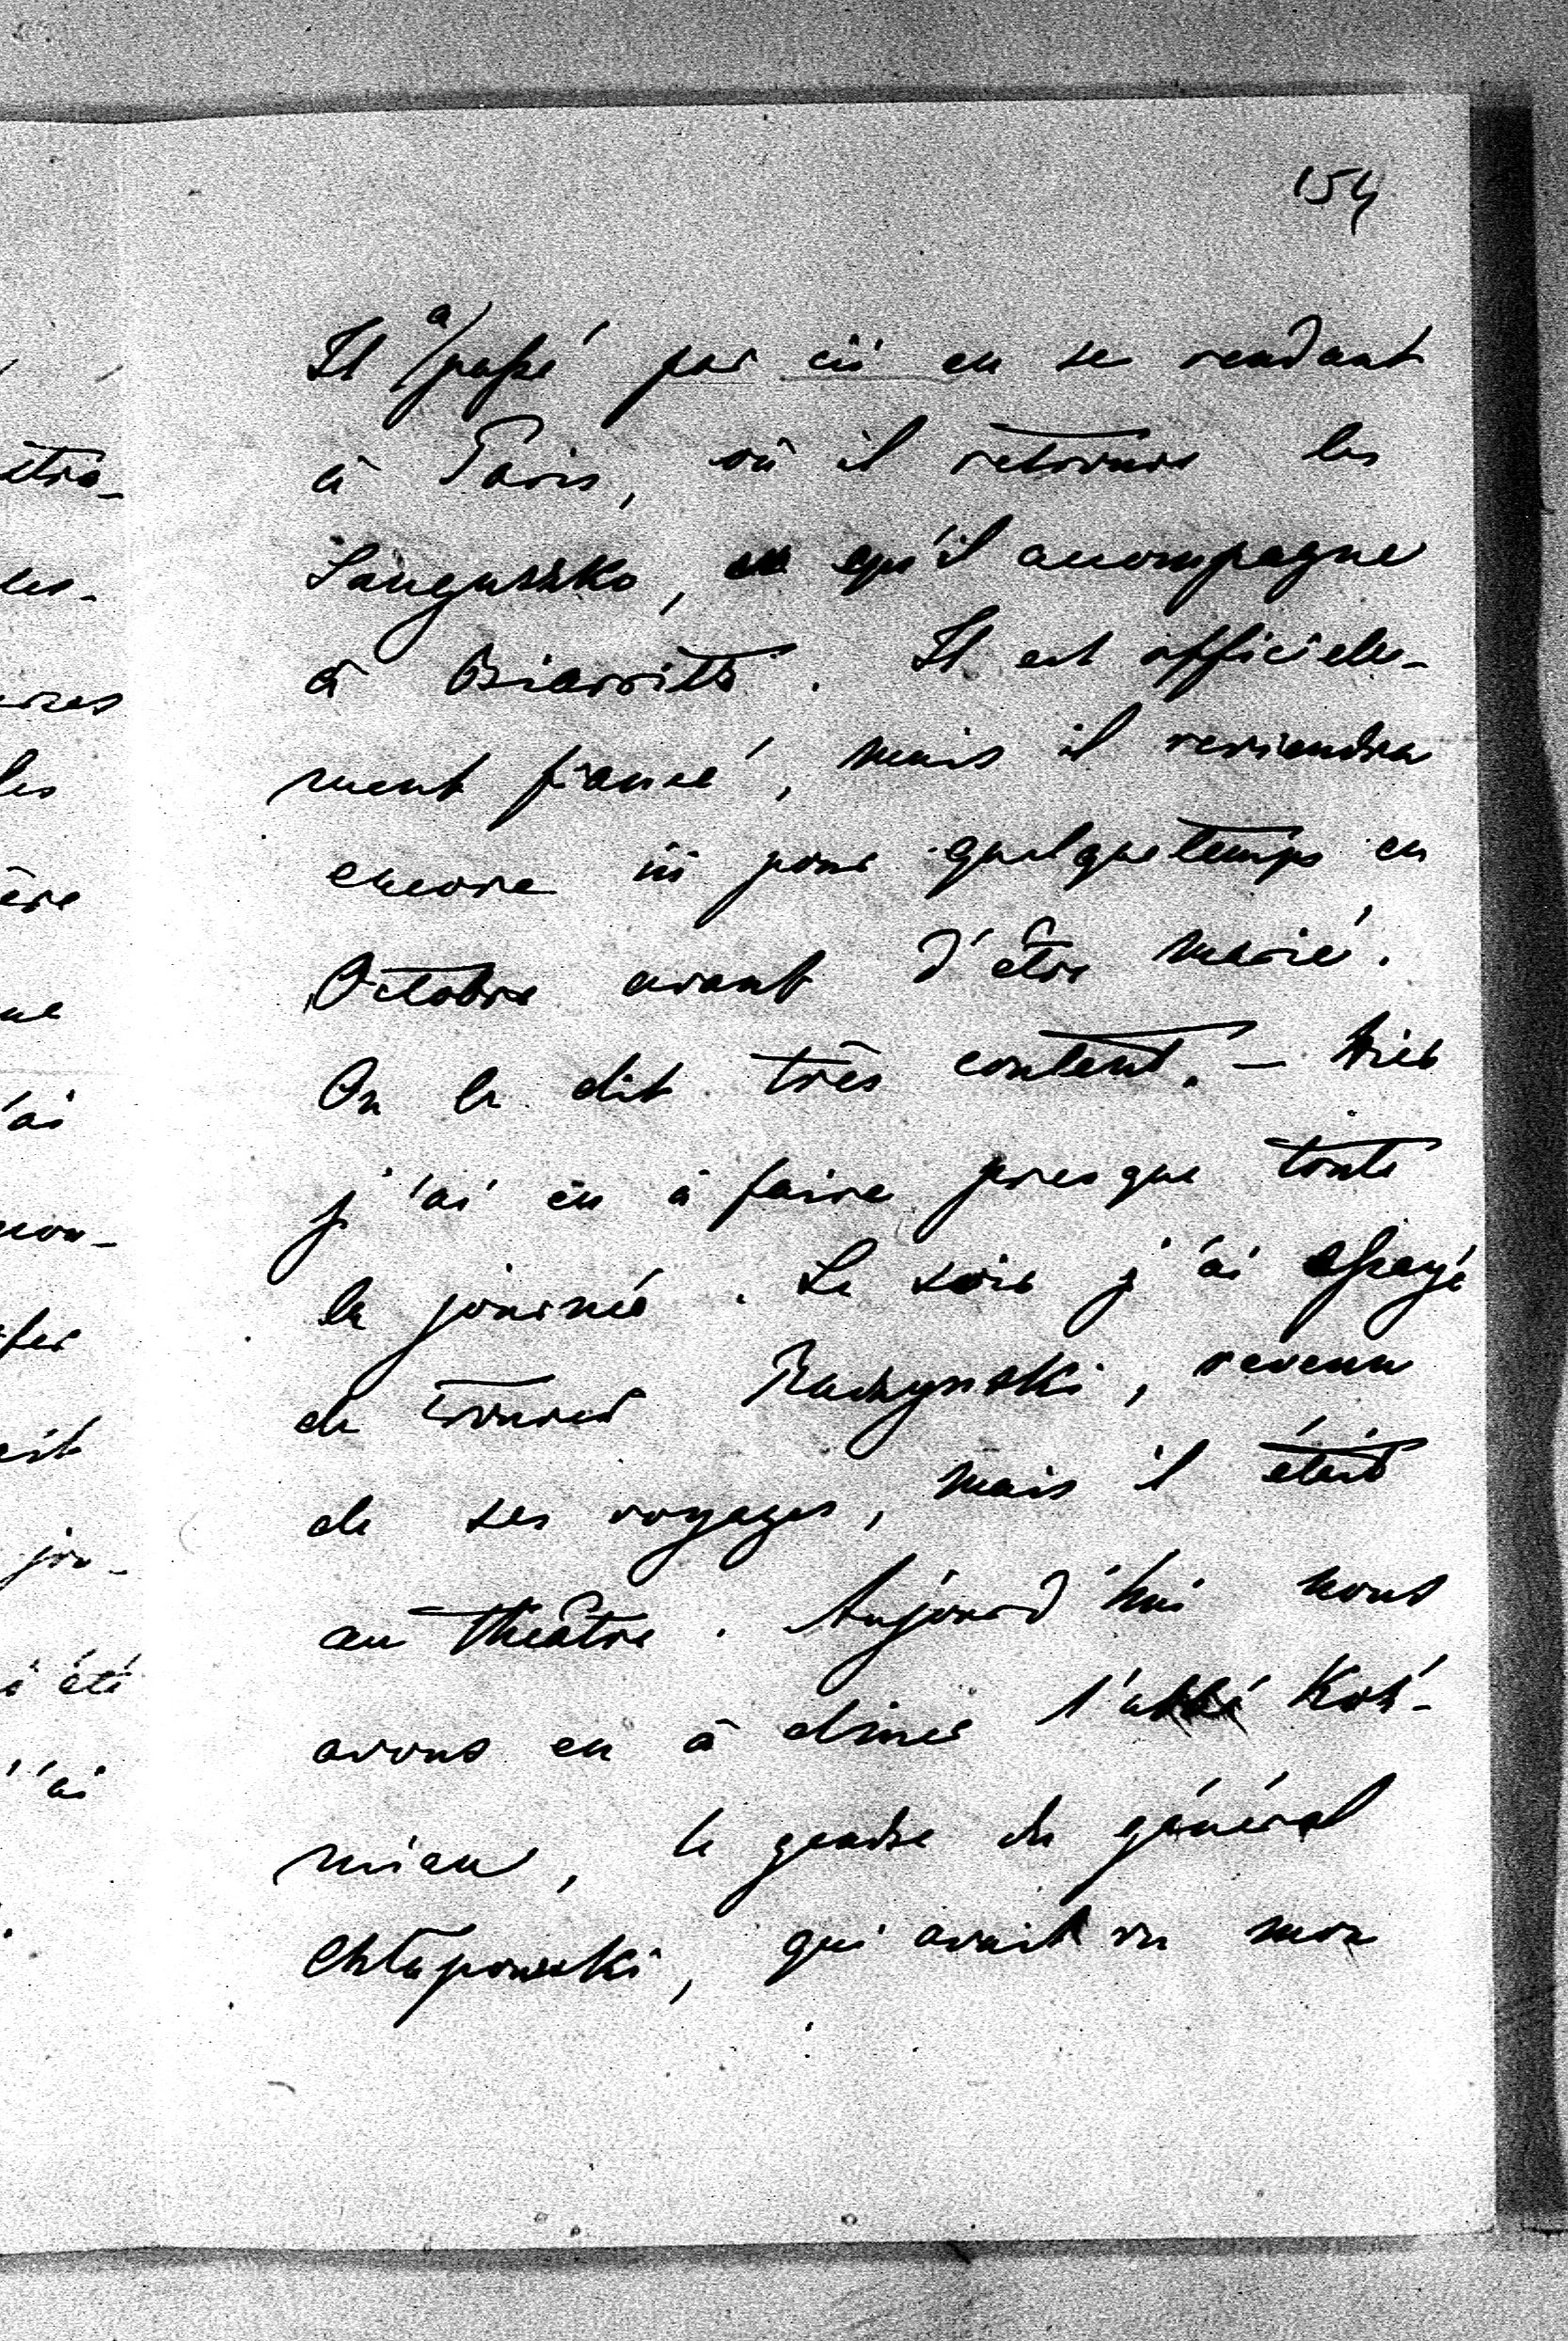 154
Il a passé par ici en se rendant
à Paris, où il retrouve les
Sanguszko, qu'il accompagne
à Biarritz. Il est officielle-
ment fiancé, mais il reviendra
encore ici pour quelque temps en
Octobre avant d'être marié.
On le dit très content. — Hier
j'ai eu à faire presque toute
la journée. Le soir j'ai essayé
de trouver Raczynski, revenu
de ses voyages, mais il était
au théâtre. Aujourd'hui nous
avons eu à diner l'abbé Koź-
mian, le gendre du général
Chłapowski, qui avait vu mon
étra-
les-
les
ère
'ai
mon-
jou-
été
'ai